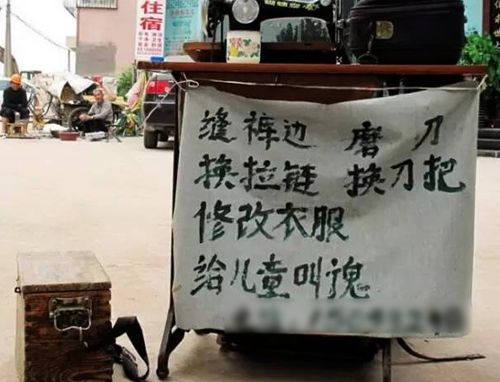 住宿
缝裤边 磨刀
换拉链 换刀把
修改衣服
给儿童叫魂